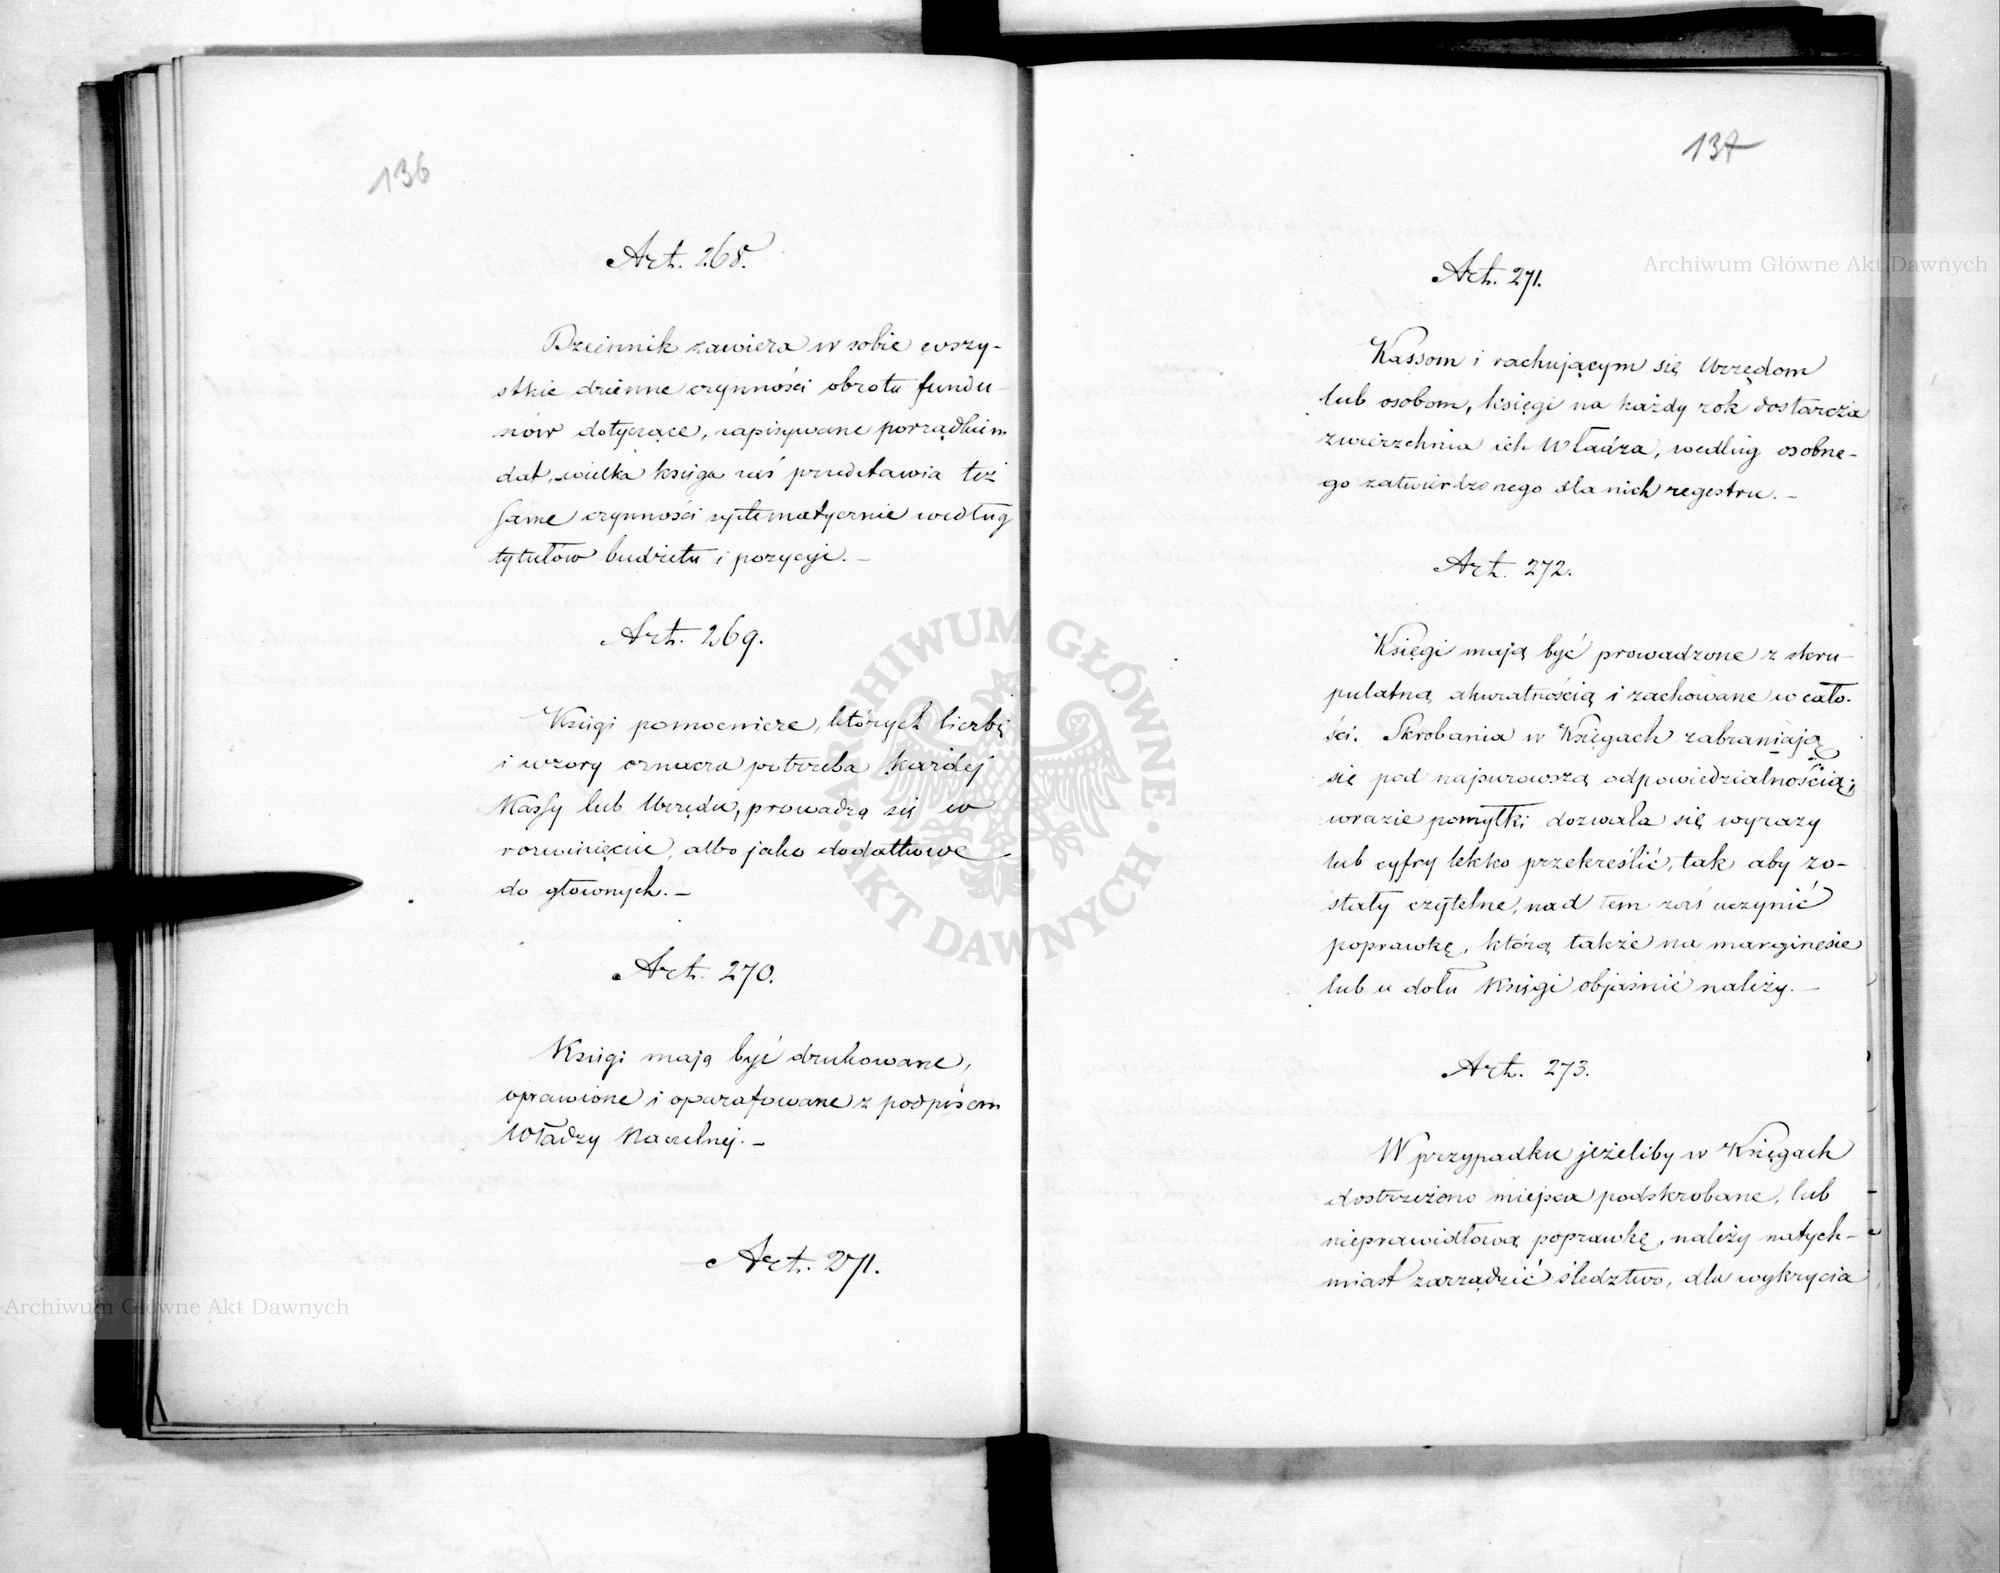 136
Art. 268.
Dziennik zawiera w sobie wszy-
stkie dzienne czynności obrotu fundu-
szów dotyczące, zapisywane porządkiem
dat, wielka księga zaś przedstawia też
same czynności systematycznie według
tytułów budżetu i pozycji. –
Art. 269.
Księgi pomocnicze, których liczbę
i wzory oznacza potrzeba każdej
Kassy lub Urzędu, prowadzą się w
rozwinięciu, albo jako dodatkowe
do głownych. –
Art. 270.
Księgi mają być drukowane,
oprawione i oparafowane z podpisem
Władzy Naczelnej. –
Art. 271.
137
Art. 271.
Kassom i rachującym się Urzędom
lub osobom, księgi na każdy rok dostarcza
zwierzchnia ich Władza, według osobne-
go zatwierdzonego dla nich regestru. –
Art. 272.
Księgi mają być prowadzone z skru-
pulatną akuratnością i zachowane w cało-
ści. Skrobania w Księgach zabraniają
się pod najsurowszą odpowiedzialnością;
wrazie pomyłki dozwala się wyrazy
lub cyfry lekko przekreślić, tak aby zo-
stały czytelne, nad tem zaś uczynić
poprawkę, którą także na marginesie
lub u dołu Księgi objaśnić należy. –
Art. 273.
W przypadku jeżeliby w Księgach
dostrzeżono miejsca podskrobane, lub
nieprawidłową poprawkę, należy natych-
miast zarządzić śledztwo, dla wykrycia
Archiwum Główne Akt Dawnych
Archiwum Główne Akt Dawnych
ARCHIWUM GŁÓWNE · AKT DAWNYCH ·